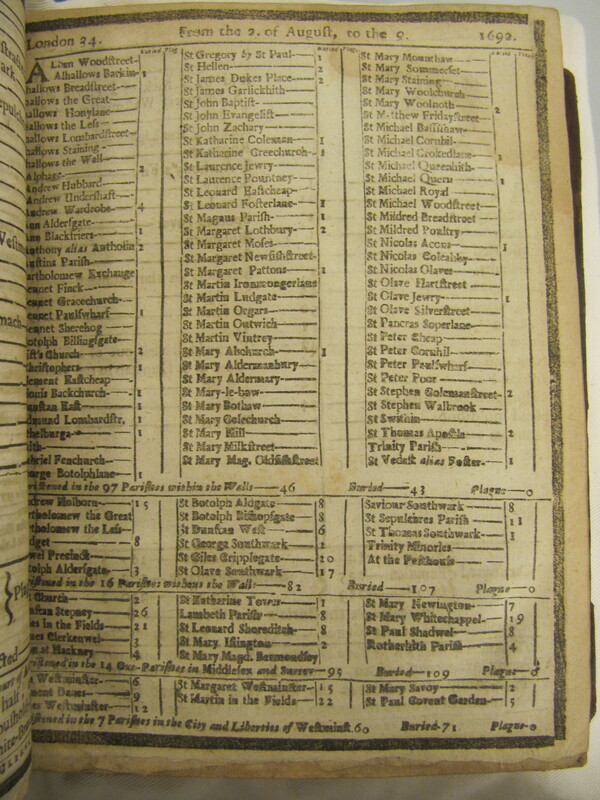 London 34. From the 2. of Auguſt, to the 9. 1692.
Buried Plag. Buried Plag. Buried Plag.
ALban Woodſtreet
Alhallows Barkin 1
hallows Breadſtreet
hallows the Great
hallows Honylane
hallows the Leſs
hallows Lombardſtreet
hallows Staining
hallows the Wall
Alphage 2
Andrew Hubbard
Andrew Underſhaft
Andrew Wardrobe 4
nn Alderſgate
nne Blackfriers 1
nthony alias Antholin 2
uſtins Pariſh
artholomew Exchange
ennet Finck
ennet Gracechurch
ennet Paulſwharf 1
ennet Sherehog
otolph Billingſgate
iſt's Church 2
hriſtophers 1
lement Eaſtcheap
ionis Backchurch 1
unſtan Eaſt 1
dmund Lombardſtr, 1
thelburga 1
ith
abriel Fenchurch
eorge Botolphlane 1
St Gregory by St Paul 1
St Hellen 2
St James Dukes Place 2
St James Garlickhith
St John Baptiſt
St John Evangeliſt
St John Zachary
St Katharine Coleman 1
St Katharine Creechurch 1
St Laurence Jewry
St Laurence Pountney
St Leonard Eaſtcheap
St Leonard Foſterlane 1
St Magnus Pariſh 1
St Margaret Lothbury 2
St Margaret Moſes
St Margaret Newfiſhſtreet
St Margaret Pattons 1
St Martin Ironmongerlane
St Martin Ludgate
St Martin Orgars
St Martin Outwich
St Martin Vintrey
St Mary Abchurch 1
St Mary Aldermanbury
St Mary Aldermary
St Mary-le-bow
St Mary Bothaw
St Mary Colechurch
St Mary Hill
St Mary Milkſtreet
St Mary Mag. Oldfiſhſtreet
St Mary Mounthaw
St Mary Sommerſet
St Mary Staining
St Mary Woolchurch
St Mary Woolnoth 2
St Matthew Fridayſtreet
St Michael Baſſiſhaw
St Michael Cornhil
St Michael Crokedlane 1
St Michael Queenhith
St Michael Quern 1
St Michael Royal
St Michael Woodſtreet
St Mildred Breadſtreet
St Mildred Poultry
St Nicolas Acons 1
St Nicolas Coleabby
St Nicolas Olaves
St Olave Hartſtreet
St Olave Jewry 1
St Olave Silverſtreet
St Pancras Soperlane
St Peter Cheap
St Peter Cornhil
St Peter Paulſwharf
St Peter Poor
St Stephen Colemanſtreet 2
St Stephen Walbrook
St Swithin
St Thomas Apoſtle 2
Trinity Pariſh
St Vedaſt alias Foſter 1
riſtened in the 97 Pariſhes within the Walls 46 Buried 43 Plague 0
ndrew Holborn 15
rtholomew the Great
rtholomew the Leſs
idget 8
wel Precinct
otolph Alderſgate 3
St Botolph Aldgate 8
St Botolph Biſhopſgate 8
St Dunſtan Weſt 6
St George Southwark 2
St Giles Cripplegate 20
St Olave Southwark 17
Saviour Southwark 8
St Sepulchres Pariſh 11
St Thomas Southwark 1
Trinity Minories
At the Peſthouſe
iſtened in the 16 Pariſhes without the Wall 82 Buried 107 Plague 0
Church 2
nſtan Stepney 26
es in the Fields 21
es Clerkenwel 3
n at Hackney 4
St Katharine Tower 1
Lambeth Pariſh 8
St Leonard Shoreditch 8
St Mary Iſlington 2
St Mary Magd. Bermondſey
St Mary Newington 7
St Mary Whitechappel 19
St Paul Shadwel 8
Rotherhith Pariſh 4
riſtened in the 14 Out-Pariſhes in Middleſex and Surrey 95 Buried 109 Plague 0
Weſtminſter 6
ment Danes 9
es Weſtminſter 12
St Margaret Weſtminſter 15
St Martin in the Fields 22
St Mary Savoy 2
St Paul Covent Garden 5
iſtened in the 7 Pariſhes in the City and Liberties of Weſtminſt. 60 Buried 71 Plague 0